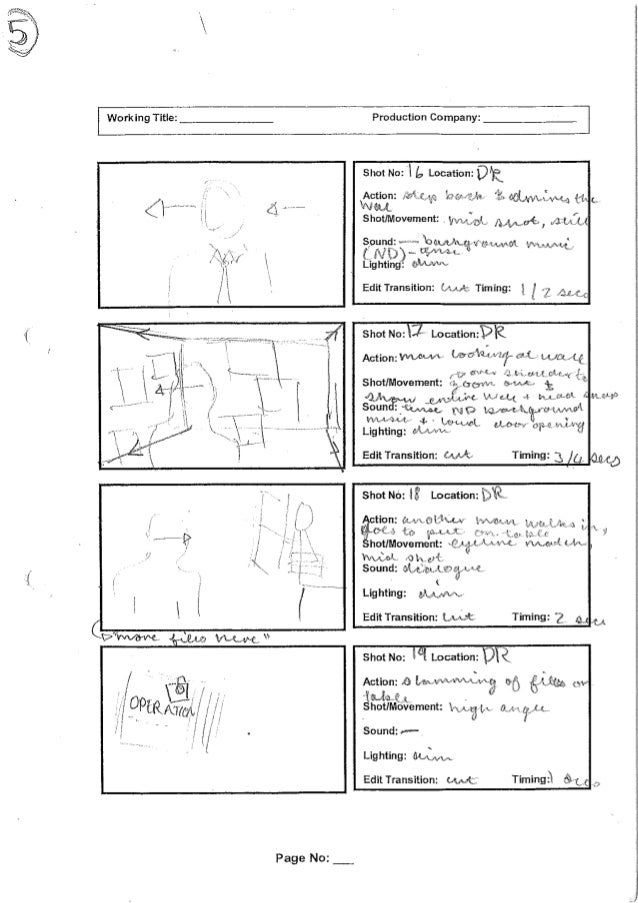 5
Working Title: Production Company:
Shot No: 16 Location: DR
Action: step back & admires the
wal
Shot/Movement: mid shot, still
Sound: — background music
(ND) - tense
Lighting: dim
Edit Transition: cut Timing: 1/2 secs
Shot No: 17 Location: DR
Action: man looking at wall
over shoulder to
Shot/Movement: zoom out &
show entire wall + head snap
Sound: tense ND background
music + loud door opening
Lighting: dim
Edit Transition: cut Timing: 3/4 secs
Shot No: 18 Location: DR
Action: another man walks in,
goes to put on table
Shot/Movement: eyeline match,
mid shot
Sound: dialogue
Lighting: dim
Edit Transition: cut Timing: 2 secs
"more files here"
OPERATION
Shot No: 19 Location: DR
Action: slamming of files on
table
Shot/Movement: high angle
Sound: —
Lighting: dim
Edit Transition: cut Timing: 1 secs
Page No: